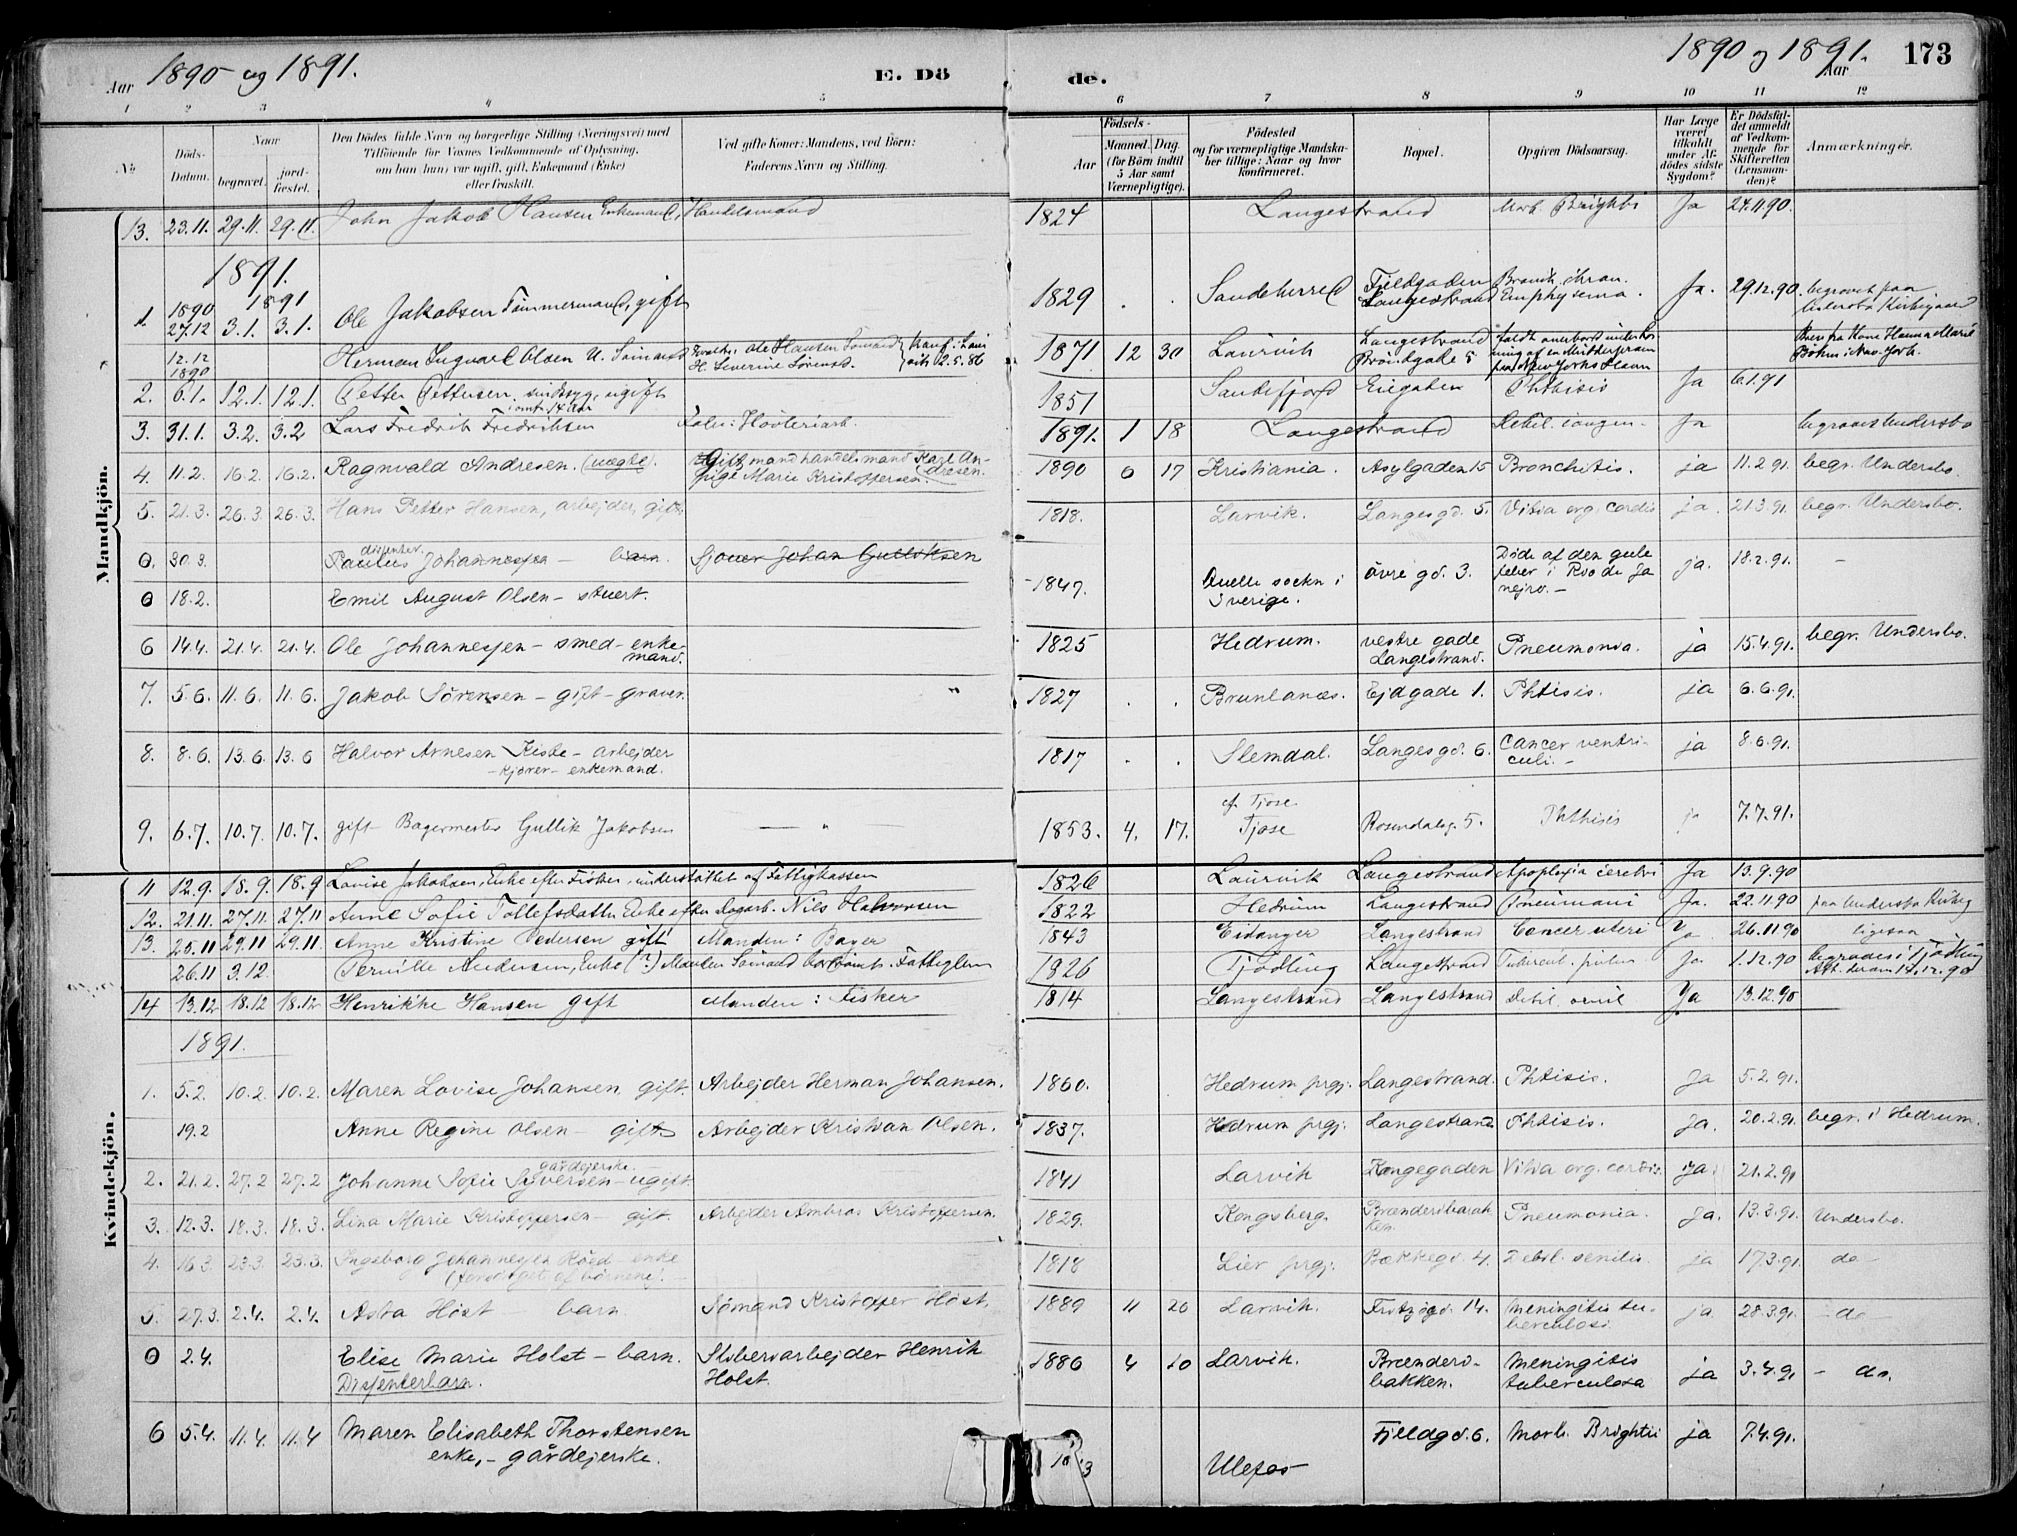 Aar 1890 og 1891.
E. Döde.
1890 og 1891.
Aar
173
1 2 3 4 5 6 7 8 9 10 11 12
№
Döds-Datum.
Naar
begravet.
jordfæstet.
Den Dödes fulde Navn og borgerlige Stilling (Næringsvei) med
Tilföiende for Voxnes Vedkommende af Oplysning,
om han (hun) var ugift, gift, Enkemand (Enke)
eller fraskilt.
Ved gifte Koner: Mandens, ved Börn:
Faderens Navn og Stilling.
Födsels-
Aar
Maaned. Dag.
(for Börn indtil
5 Aar samt
Værnepligtige).
Födested
og for værnepligtige Mandskaber tillige: Naar og hvor
konfirmeret.
Bopæl.
Opgiven Dödsaarsag.
Har Læge
været
tilkaldt
under Afdödes sidste
Sygdom?
Er Dödsfaldet anmeldt
af Vedkommende for
Skifteretten
(Lensmanden)?
Anmærkninger.
Mandkjön.
13. 23.11. 29.11. 29.11. John Jakob Hansen Enkemand, Handelsmand 1824 Langestrand Morb. Brightii Ja 24.11.90.
1891.
1 1890 27.12 1891 3.1. 3.1. Ole Jakobsen Tömmermand, gift 1829 . . Sandeherred Fjeldgaden Langestrand Bronch. chron. Emphysema. Ja. 29.12.90. begravet paa Undersbo Kirkegaard
12.12 1890 Herman Ingvald Olsen U. Sömand Ole Hansen Sömand H. Severine Sörensd. Konf: Laurvik 2.5.86 1871 12 30 Laurvik Langestrand Brandgade 5 New Yorks Havn Brev fra Kone Hanna Marie Böhm i New York.
2. 6.1. 12.1. 12.1. Petter Pettersen, sindssyg, ugift i omtr. 14 Aar 1851 Sandefjord Eiegaden Phthisis Ja 6.1.91
3. 31.1. 3.2. 3.2 Lars Fredrik Fredriksen Fader: Hövleriarb. 1891. 1 18 Langestrand Debil. congen. Ja begraves Undersbo
4. 11.2. 16.2. 16.2. Ragnvald Andresen. (uægte). Gift mand handelsmand Karl Andresen. pige Marie Kristoffersen. 1890 6 17 Kristiania. Asylgaden 15 Bronchitis. ja 11.2.91. begr. Undersbo.
5. 21.3. 26.3. 26.3. Hans Petter Hansen, arbejder, gift. 1818. Larvik. Langesgd. 5. Vitia org. cordis ja. 21.3.91. begr. Undersbo.
0. 30.3. dissenter. Paulus Johannessen — barn Sjouer Johan Gulliksen
0 18.2. Emil August Olsen — stuert. 1847. Qvelle sockn i Sverige. övre gd. 3. Döde af den gule feber i Rio de Janejro. — ja. 18.2.91. —
6 14.4. 21.4. 21.4. Ole Johannessen — smed — enkemand. 1825 Hedrum. vestre gade Langestrand. Pneumonia. ja 15.4.91. begr. Undersbo.
7. 5.6. 11.6. 11.6. Jakob Sörensen — gift — graver. " 1827 . . Brunlanæs. Ejdgade 1. Phtisis. ja 6.6.91.
8. 8.6. 13.6. 13.6 Halvor Arnesen Kiste — arbejder — kjörer — enkemand. 1817 . . Slemdal. Langesgd. 6. Cancer ventriculi. — ja 8.6.91.
9. 6.7. 10.7. 10.7. gift Bagermester Gullik Jakobsen — " 1853. 4. 17. af Tjose Tjose Rosendalsg. 5. Phthisis ja 7.7.91.
Kvindekjön.
11 12.9. 18.9. 18.9 Lovise Jakobsen, Enke efter Fisker, understöttet af Fattigkassen 1826 Laurvik Langestrand Apoplexia cerebri Ja 13.9.90
12. 21.11. 27.11. 27.11 Anne Sofie Tollefsdatter, Enke efter Dagarb. Nils Halvorsen 1822 Hedrum Langestrand Pneumoni Ja. 22.11.90 paa Undersbo Kirkeg
13. 25.11 29.11 29.11. Anne Kristine Pedersen gift Manden: Bager 1843 Eidanger Langestrand Cancer uteri Ja 26.11.90 ligesaa
26.11 3.12. Pernille Andersen, Enke (?) Manden Sömand Fattiglem 1826 Tjödling Langestrand Tubercul. pulm. Ja 1.12.90 begraves i Tjödling
14 13.12 18.12 18.12 Henrikke Hansen gift Manden: Fisker 1814 Langestrand Langestrand Debil. senil Ja 13.12.90
1891.
1. 5.2. 10.2. 10.2. Maren Lovise Johansen, gift. Arbejder Herman Johansen. 1860. Hedrum prgj. Langestrand. Phtisis. Ja 5.2.91.
19.2 Anne Regine Olsen — gift Arbejder Kristian Olsen. 1837. Hedrum prgj. Langestrand Phtisis. Ja. 20.2.91 begr. i Hedrum.
2. 21.2. 27.2 27.2 Johanne Sofie Syversen — ugift. gårdejerske. 1841 Larvik Kongegaden Vitia org. cordis. ja 21.2.91
3. 12.3. 18.3. 18.3. Lina Marie Kristoffersen — gift. Arbejder Ambros Kristoffersen. 1829. Kongsberg. Brændersbarakken. Pneumonia. Ja. 13.3.91. Undersbo.
4. 16.3. 23.3. 23.3. Ingeborg Johannessen Röed — enke (forsörget af börnene). — 1818 Lier prgj. Bækkegd. 4. Debil. senilis. ja 17.3.91. do —
5. 27.3. 2.4. 2.4. Asta Höst barn. Sömand Kristoffer Höst. 1889 11 20 Larvik. Fritzögd. 14. Meningitis tuberculosi ja. 28.3.91. — do —
0 2.4. Elise Marie Holst — barn. Dissenterbarn. Sliberiarbejder Henrik Holst. 1886 4 10 Larvik. Brændersbakken. Meningitis tuberculosa ja 3.4.91 — do.
6 5.4. 11.4. 11.4 Maren Elisabeth Thorstensen enke, — gårdejerske. Ulefos Fjeldgd. 6. Morb. Brightii ja 7.4.91.